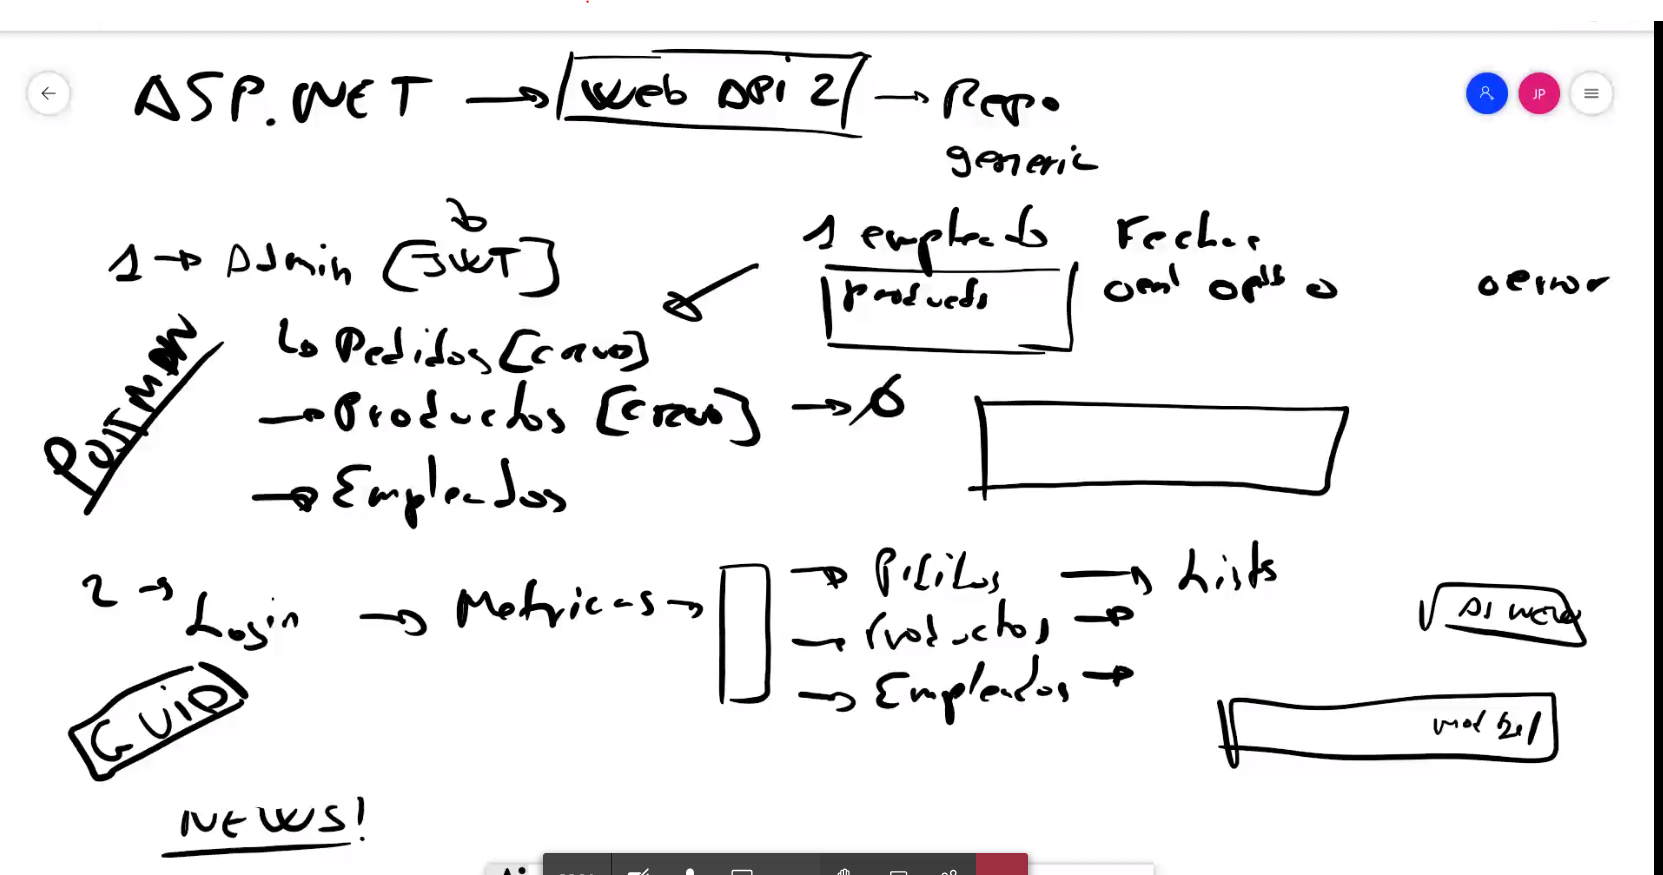 ASP.NET → Web API 2 → Repo
generic
JP
1 → Admin [JWT]
↳ Pedidos [CRUD]
→ Productos [CRUD] →
→ Empleados
POSTMAN
1 empleado
Fecha
Products
o error
2 → Login → Metricas →
→ Pedidos → Lists
→ Productos →
→ Empleados →
GUID
NEWS!